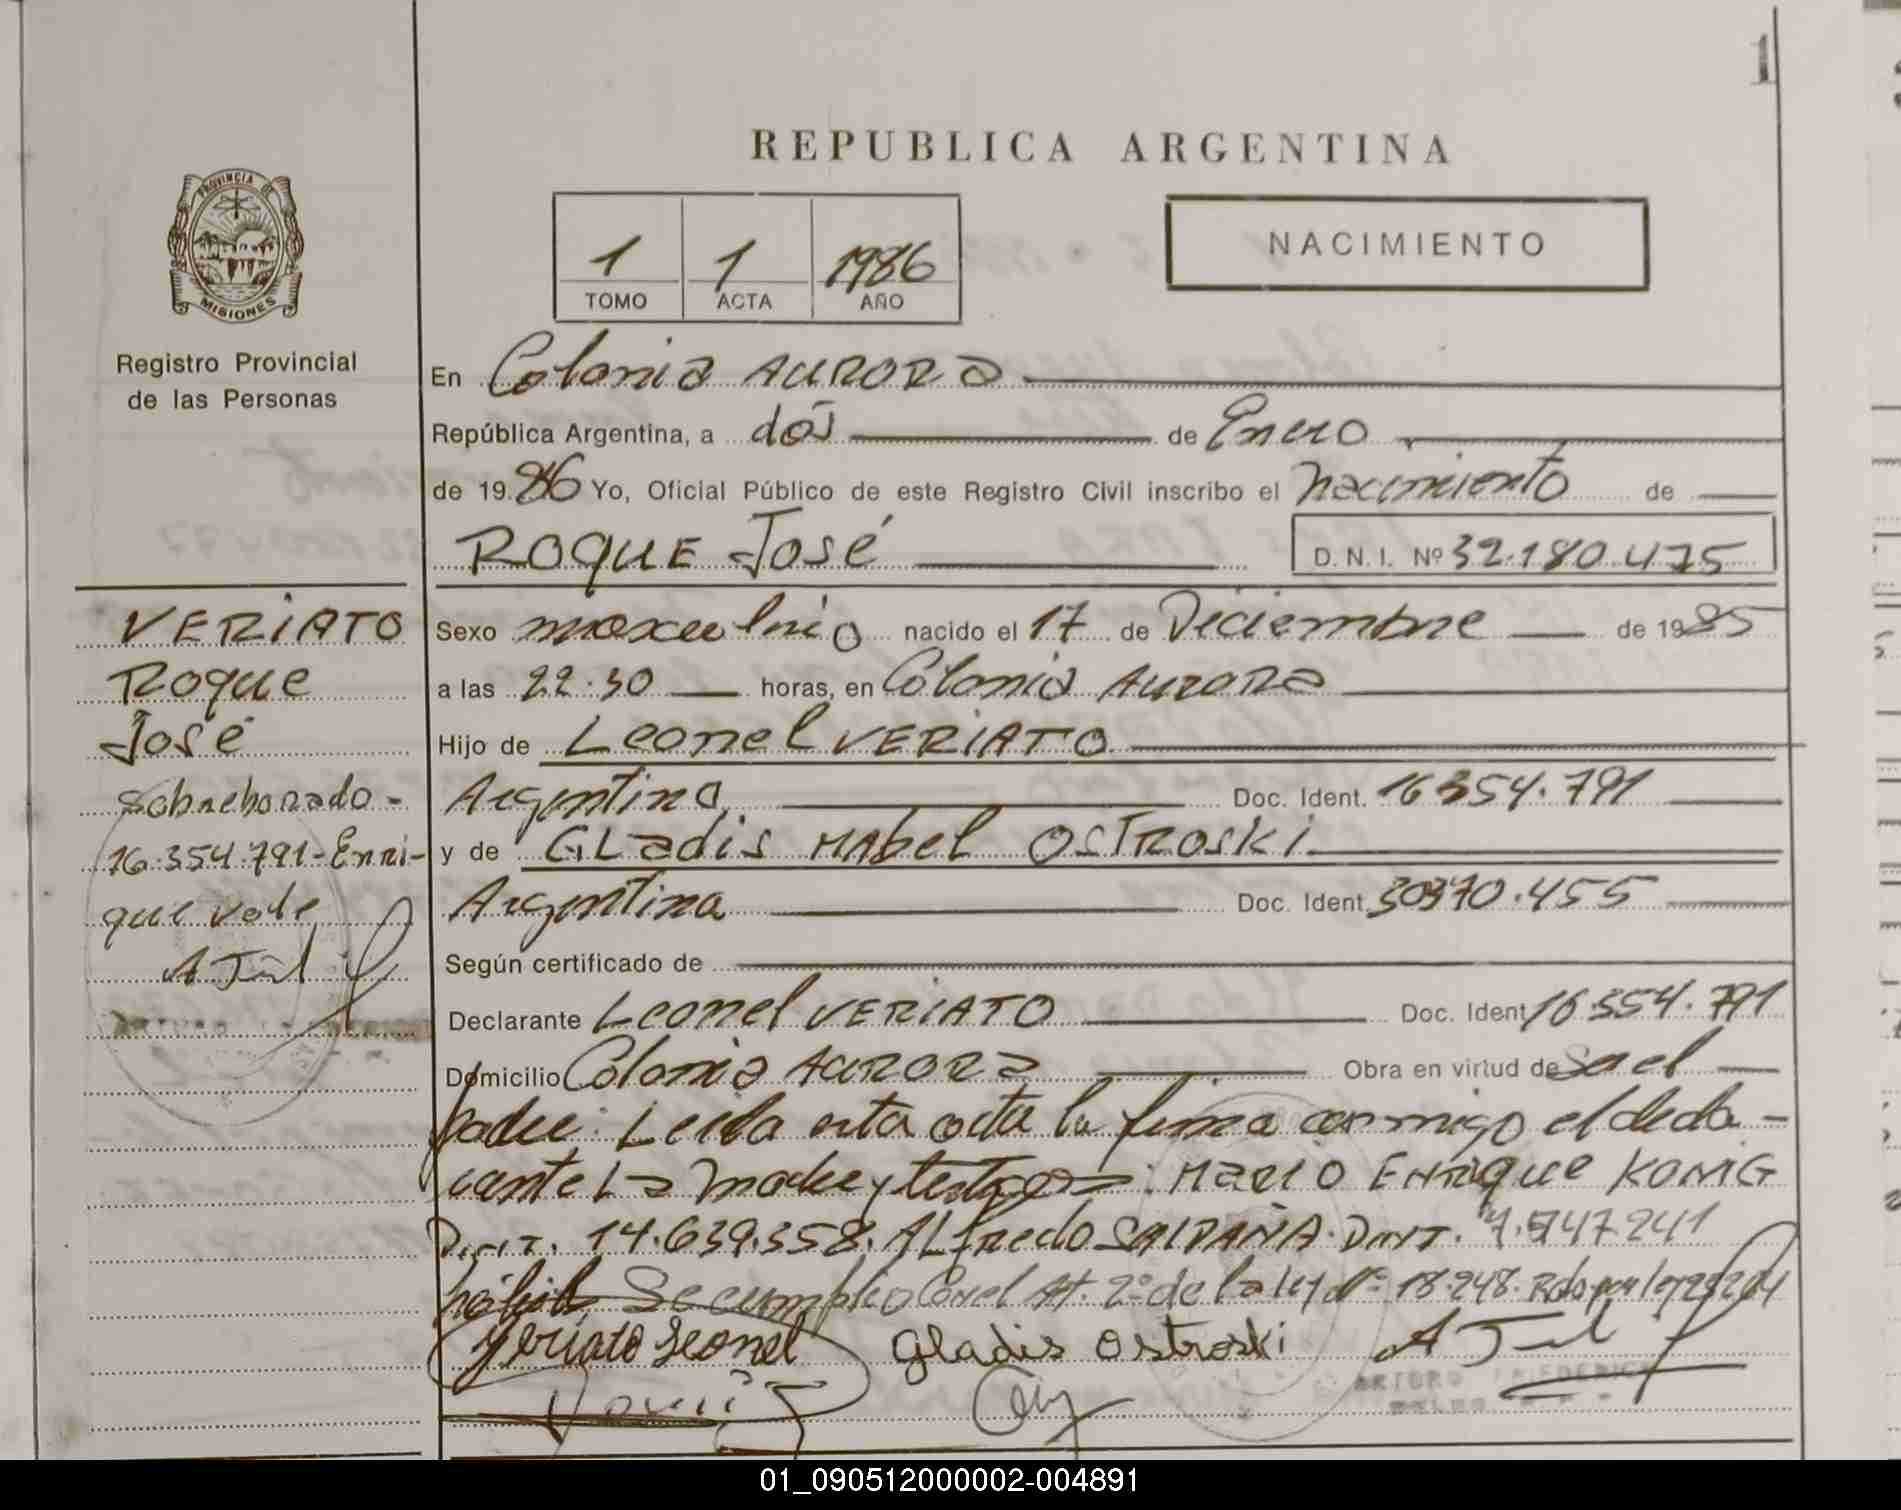 1
REPUBLICA ARGENTINA
PROVINCIA DE
MISIONES
Registro Provincial
de las Personas
1 1 1986
TOMO ACTA AÑO
NACIMIENTO
En Colonia AURORA
República Argentina, a dós de Enero
de 1986 Yo, Oficial Público de este Registro Civil inscribo el nacimiento de
ROQUE José D.N.I. Nº 32.180.475
VERIATO
Roque
José
Sobreborrado -
16.354.791-Enri-
que vale
Sexo masculino nacido el 17 de Diciembre de 1985
a las 22.30 horas, en Colonia Aurora
Hijo de Leonel VERIATO
Argentina Doc. Ident. 16354.791
y de GLadis MAbel OSTROSKI
Argentina Doc. Ident. 30370.455
Según certificado de
Declarante Leonel VERIATO Doc. Ident 16.354.791
Domicilio Colonia AURORA Obra en virtud de Ser el
padre: Leida esta acta la firma conmigo el decla-
rante La madre y testigos: MARIO ENRIQUE KONIG
14.639.358. ALfredo SALDAÑA.
Se cumplio Con el Art. 2º de la ley Nº 18.248.
Veriato Leonel Gladis Ostroski
ARTURO FRIEDERICH
01_090512000002-004891